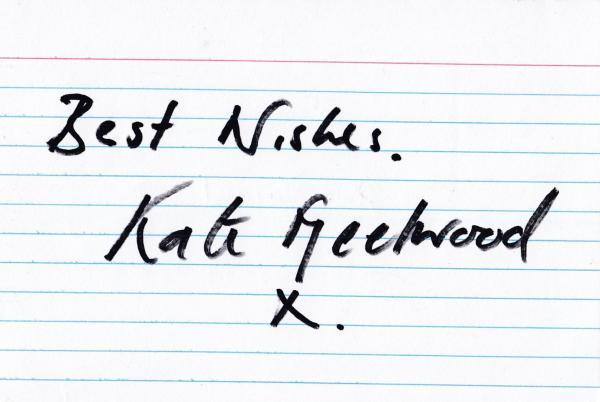 Best Wishes.
Kate Fleetwood
X.